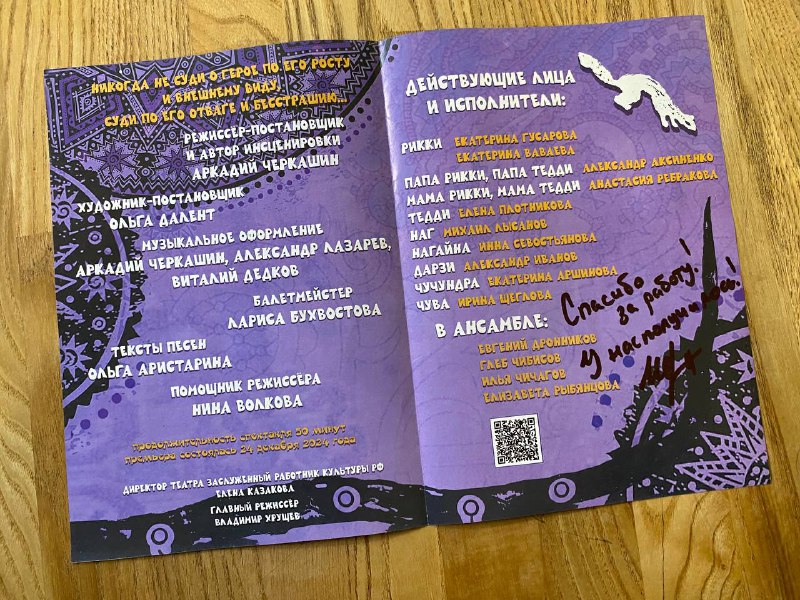 НИКОГДА НЕ СУДИ О ГЕРОЕ ПО ЕГО РОСТУ
И ВНЕШНЕМУ ВИДУ,
СУДИ ПО ЕГО ОТВАГЕ И БЕССТРАШИЮ...
РЕЖИССЕР-ПОСТАНОВЩИК
И АВТОР ИНСЦЕНИРОВКИ
АРКАДИЙ ЧЕРКАШИН
ХУДОЖНИК-ПОСТАНОВЩИК
ОЛЬГА ДАЛЕНТ
МУЗЫКАЛЬНОЕ ОФОРМЛЕНИЕ
АРКАДИЙ ЧЕРКАШИН, АЛЕКСАНДР ЛАЗАРЕВ,
ВИТАЛИЙ ДЕДКОВ
БАЛЕТМЕЙСТЕР
ЛАРИСА БУХВОСТОВА
ТЕКСТЫ ПЕСЕН
ОЛЬГА АРИСТАРИНА
ПОМОЩНИК РЕЖИССЁРА
НИНА ВОЛКОВА
ПРОДОЛЖИТЕЛЬНОСТЬ СПЕКТАКЛЯ 50 МИНУТ
ПРЕМЬЕРА СОСТОЯЛАСЬ 24 ДЕКАБРЯ 2024 ГОДА
ДИРЕКТОР ТЕАТРА ЗАСЛУЖЕННЫЙ РАБОТНИК КУЛЬТУРЫ РФ
ЕЛЕНА КАЗАКОВА
ГЛАВНЫЙ РЕЖИССЁР
ВЛАДИМИР УРУЩЕВ
ДЕЙСТВУЮЩИЕ ЛИЦА
И ИСПОЛНИТЕЛИ:
РИККИ ЕКАТЕРИНА ГУСАРОВА
ЕКАТЕРИНА ВАВАЕВА
ПАПА РИККИ, ПАПА ТЕДДИ АЛЕКСАНДР АКСИНЕНКО
МАМА РИККИ, МАМА ТЕДДИ АНАСТАСИЯ РЕБРАКОВА
ТЕДДИ ЕЛЕНА ПЛОТНИКОВА
НАГ МИХАИЛ ЛЫСАНОВ
НАГАЙНА ИННА СЕВОСТЬЯНОВА
ДАРЗИ АЛЕКСАНДР ИВАНОВ
ЧУЧУНДРА ЕКАТЕРИНА АРШИНОВА
ЧУВА ИРИНА ЩЕГЛОВА
В АНСАМБЛЕ:
ЕВГЕНИЙ ДРОННИКОВ
ГЛЕБ ЧИБИСОВ
ИЛЬЯ ЧИЧАГОВ
ЕЛИЗАВЕТА РЫБЯНЦОВА
Спасибо
за работу!
У нас получилось!